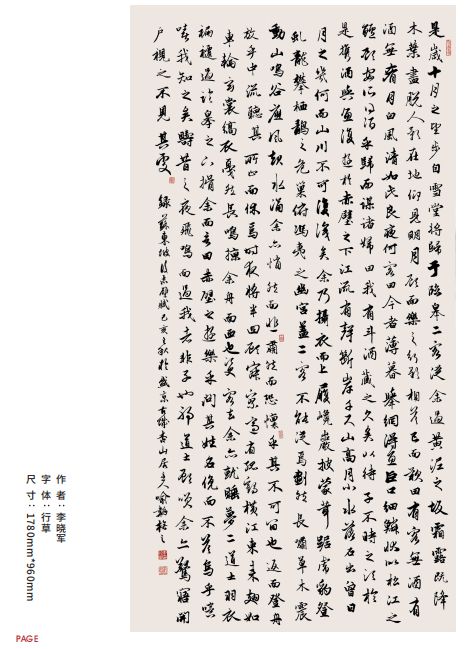 是歲十月之望步自雪堂將歸于臨皋二客從余過黃泥之坂霜露既降
木葉盡脫人影在地仰見明月顧而樂之行歌相答已而歎曰有客無酒有
酒無肴月白風清如此良夜何客曰今者薄暮舉網得魚巨口細鱗狀似松江之
鱸顧安所得酒乎歸而謀諸婦婦曰我有斗酒藏之久矣以待子不時之須於
是攜酒與魚復遊於赤壁之下江流有聲斷岸千尺山高月小水落石出曾日
月之幾何而江山不可復識矣余乃攝衣而上履巉巖披蒙茸踞虎豹登
虬龍攀栖鶻之危巢俯馮夷之幽宮蓋二客不能從焉劃然長嘯草木震
動山鳴谷應風起水涌余亦悄然而悲肅然而恐凜乎其不可留也返而登舟
放乎中流聽其所止而休焉時夜將半四顧寂寥適有孤鶴橫江東來翅如
車輪玄裳縞衣戛然長鳴掠余舟而西也須臾客去余亦就睡夢二道士羽衣
蹁躚過臨皋之下揖余而言曰赤壁之遊樂乎問其姓名俛而不答嗚呼噫
嘻我知之矣疇昔之夜飛鳴而過我者非子也邪道士顧笑余亦驚寤開
戶視之不見其處
錄蘇東坡後赤壁賦己亥之秋於盛京古城
作 者：李晓军
字 体：行草
尺 寸：1780mm*960mm
PAGE